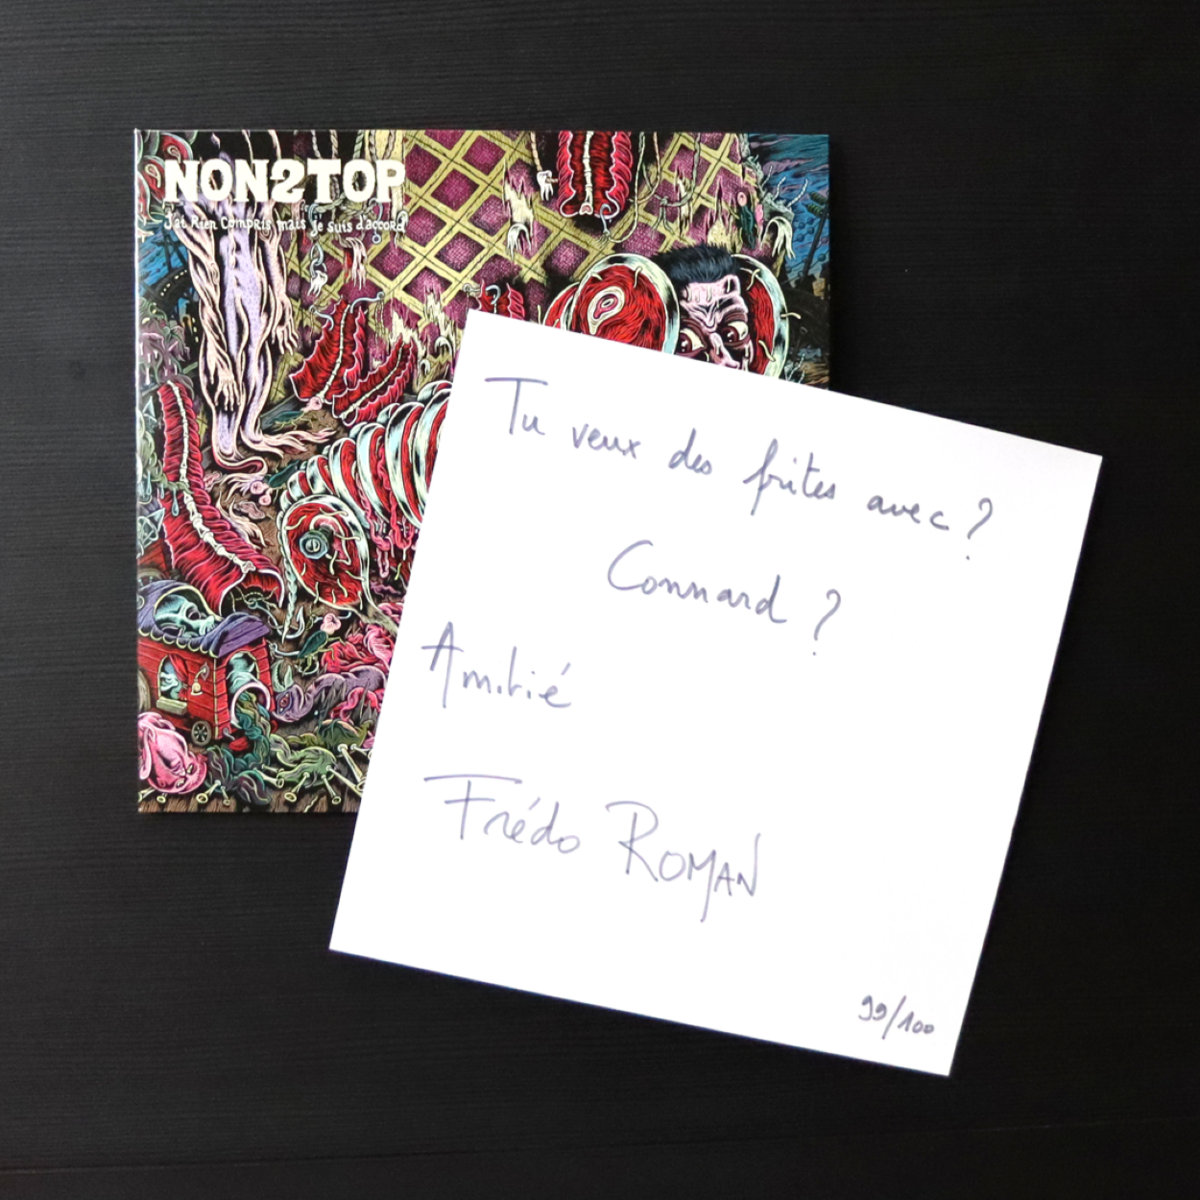 NON2TOP
J'ai Rien Compris mais je suis d'accord
Tu veux des frites avec ?
Connard ?
Amitié
Frédo ROMAN
99/100